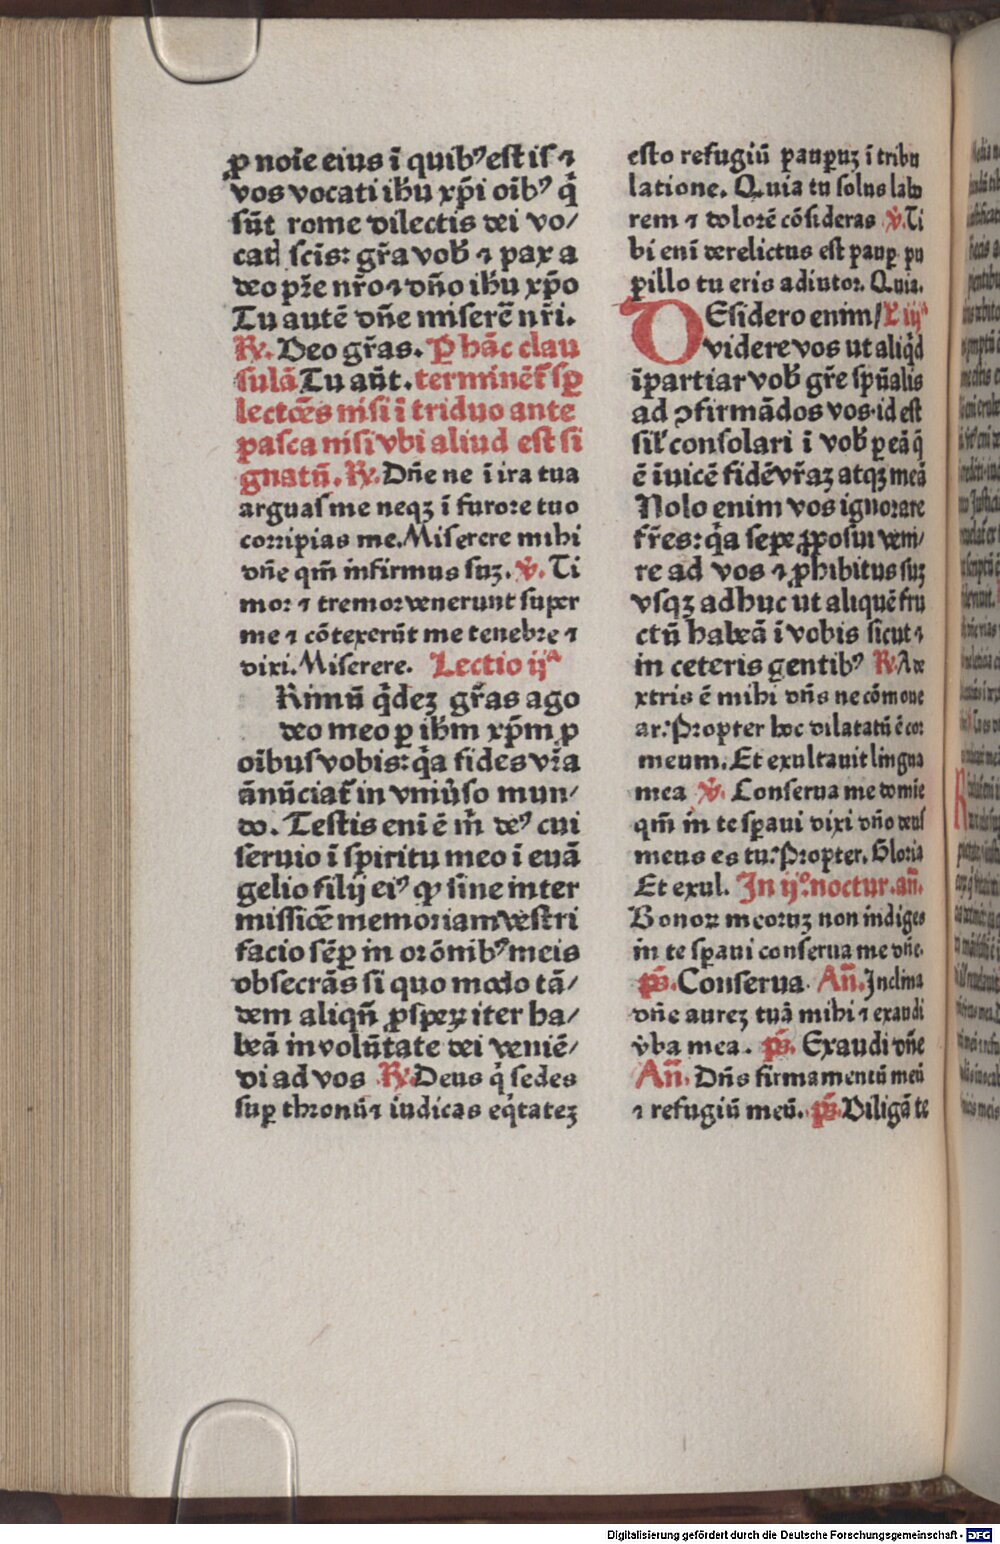 ꝓ noīe eius ī quibꝰ estis ⁊
vos vocati ihū xp̄i oībꝰ q̇
sūt rome dilectis dei vo/
cat̄ scīs: gr̄a vob̄ ⁊ pax a
deo pr̄e nr̄o ⁊ dño ihū xp̄o
Tu autē dñe miserē nr̄i.
℟. Deo gr̄as. Per hāc clau
sulā Tu aūt. terminēt̄ sꝑ
lectōēs nisi ī triduo ante
pasca nisi vbi aliud est si
gnatū. ℟. Dñe ne ī ira tua
arguas me neqꝫ ī furore tuo
corripias me. Miserere mihi
dñe qm̄ infirmus suꝫ. ℣. Ti
mor ⁊ tremor venerunt super
me ⁊ cōtexerūt me tenebre ⁊
vixi. Miserere. Lectio ijᵃ
Rimū q̇deꝫ gr̄as ago
deo meo ꝑ ihm̄ xp̄m ꝓ
oībus vobis: q̇a fides vr̄a
ānūciat̄ in vniu̇so mun/
do. Testis eni ē m̄ deꝰ cui
seruio ī spiritu meo ī euā
gelio filij eiꝰ ꝙ sine inter
missiōe memoriam vestri
facio sēꝑ in orōnibꝰ meis
obsecrās si quo modo tā/
dem aliqñ ꝓsperꝫ iter ha/
beā in volūtate dei veniē/
di ad vos ℟. Deus q̇ sedes
suꝑ thronū ⁊ iudicas eq̇tateꝫ
esto refugiū pauꝑuꝫ ī tribu
latione. Quia tu solus labo
rem ⁊ dolorē cōsideras ℣. Ti
bi eni derelictus est pauꝑ pu
pillo tu eris adiutor. Quia.
DEsidero enim / L iijᵃ
videre vos ut aliq̇d
īpartiar vob̄ gr̄e spūalis
ad ꝯfirmādos vos. id est
sil̄ consolari ī vob̄ ꝑ eā q̄
ē īuicē fidē vr̄aꝫ atqꝫ meā
Nolo enim vos ignorare
fr̄es: q̇a sepe ꝓposui veni/
re ad vos ⁊ ꝓhibitus suꝫ
vsqꝫ adhuc ut aliquē fru
ctū habeā ī vobis sicut ⁊
in ceteris gentibꝰ ℟. A de
xtris ē mihi dñs ne cōmoue
ar: Propter hoc dilatatū ē cor
meum. Et exultauit lingua
mea ℣. Conserua me domie
qm̄ in te sꝑaui dixi dño deus
meus es tu: Propter. Gloria
Et exul. In ijº. noctur. añ.
Bonoꝝ meoruꝫ non indiges
in te sꝑaui conserua me dñe.
ps̄. Conserua. Añ. Inclina
dñe aureꝫ tuā mihi ⁊ exaudi
v̇ba mea. ps̄. Exaudi dñe
Añ. Dñs firmamentū meū
⁊ refugiū meū. ps̄. Diligā te
Digitalisierung gefördert durch die Deutsche Forschungsgemeinschaft - DFG